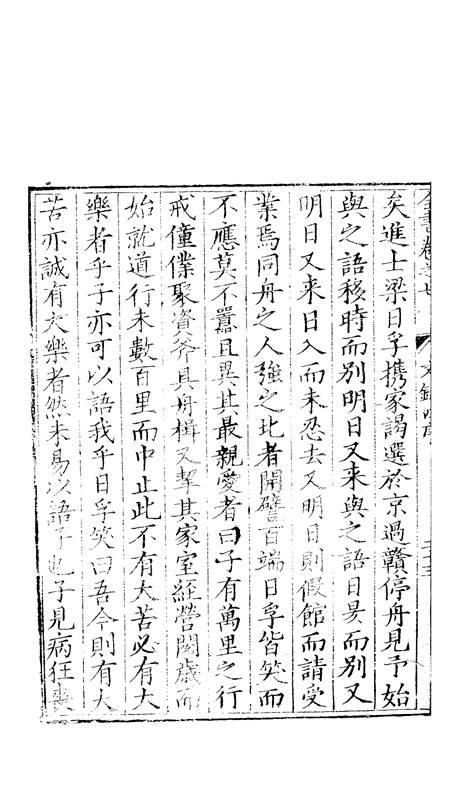 全書卷之七 文錄四序
矣進士梁日孚携家謁選於京過贛停舟見予始
與之語移時而別明日又来與之語日昃而別又
明日又来日入而未忍去又明日則假館而請受
業焉同舟之人強之北者開譬百端日孚皆笑而
不應莫不嚚且異其最親愛者曰子有萬里之行
戒僮僕聚資斧具舟楫又挈其家室經營閱歲而
始就道行未數百里而中止此不有大苦必有大
樂者乎子亦可以語我乎日孚笑曰吾今則有大
苦亦誠有大樂者然未易以語子也子見病狂喪